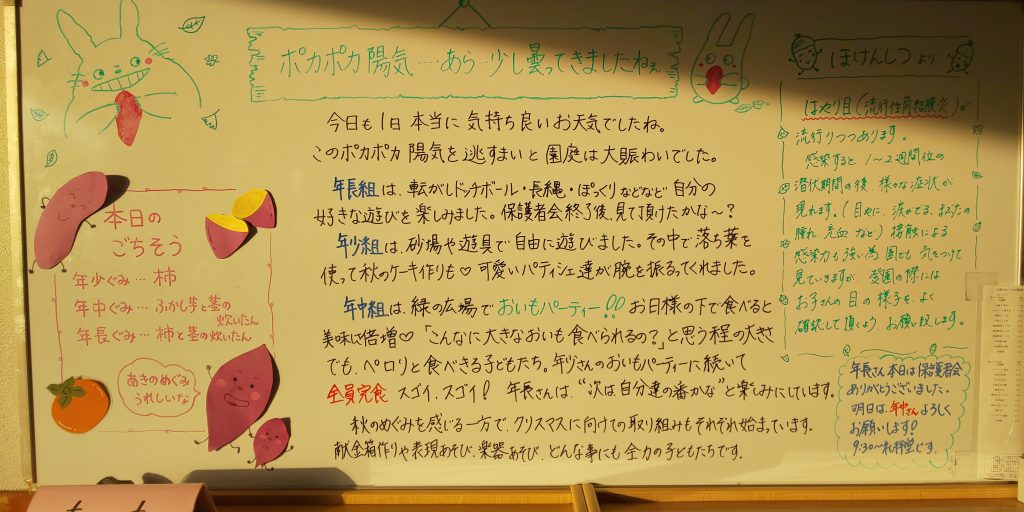 ポカポカ陽気…あら…少し曇ってきましたねぇ
今日も1日本当に気持ち良いお天気でしたね。
このポカポカ陽気を逃すまいと園庭は大賑わいでした。
年長組は、転がしドッチボール・長縄・ぽっくりなどなど自分の
好きな遊びを楽しみました。保護者会終了後、見て頂けたかな〜？
年少組は、砂場や遊具で自由に遊びました。その中で落ち葉を
使って秋のケーキ作りも♡可愛いパティシェ達が腕を振るってくれました。
年中組は、緑の広場でおいもパーティー!!お日様の下で食べると
美味しさ倍増♡「こんなに大きなおいも食べられるの？」と思う程の大きさ
でも、ペロリと食べきる子どもたち。年少さんのおいもパーティーに続いて
全員完食 スゴイ、スゴイ! 年長さんは、“次は自分達の番かな”と楽しみにしています。
秋のめぐみを感じる一方で、クリスマスに向けての取り組みもそれぞれ始まっています。
献金箱作りや表現あそび、楽器あそび、どんな事にも全力の子どもたちです。
本日の
ごちそう
年少ぐみ…柿
年中ぐみ…ふかし芋と茎の
炊いたん
年長ぐみ…柿と茎の炊いたん
あきのめぐみ
うれしいな
ほけんしつより
はやり目(流行性角結膜炎)が
流行りつつあります。
感染すると1〜2週間位の
潜伏期間の後、様々な症状が
現れます。(目やに、涙がでる、まぶたの
腫れ、充血など)接触による
感染力も強い為、園でも気をつけて
見ていきますが、登園の際には
お子さんの目の様子を、よく
確認して頂くよう、お願い致します。
年長さん本日は保護者会
ありがとうございました。
明日は、年中さんよろしく
お願いします!
9:30〜礼拝堂です。